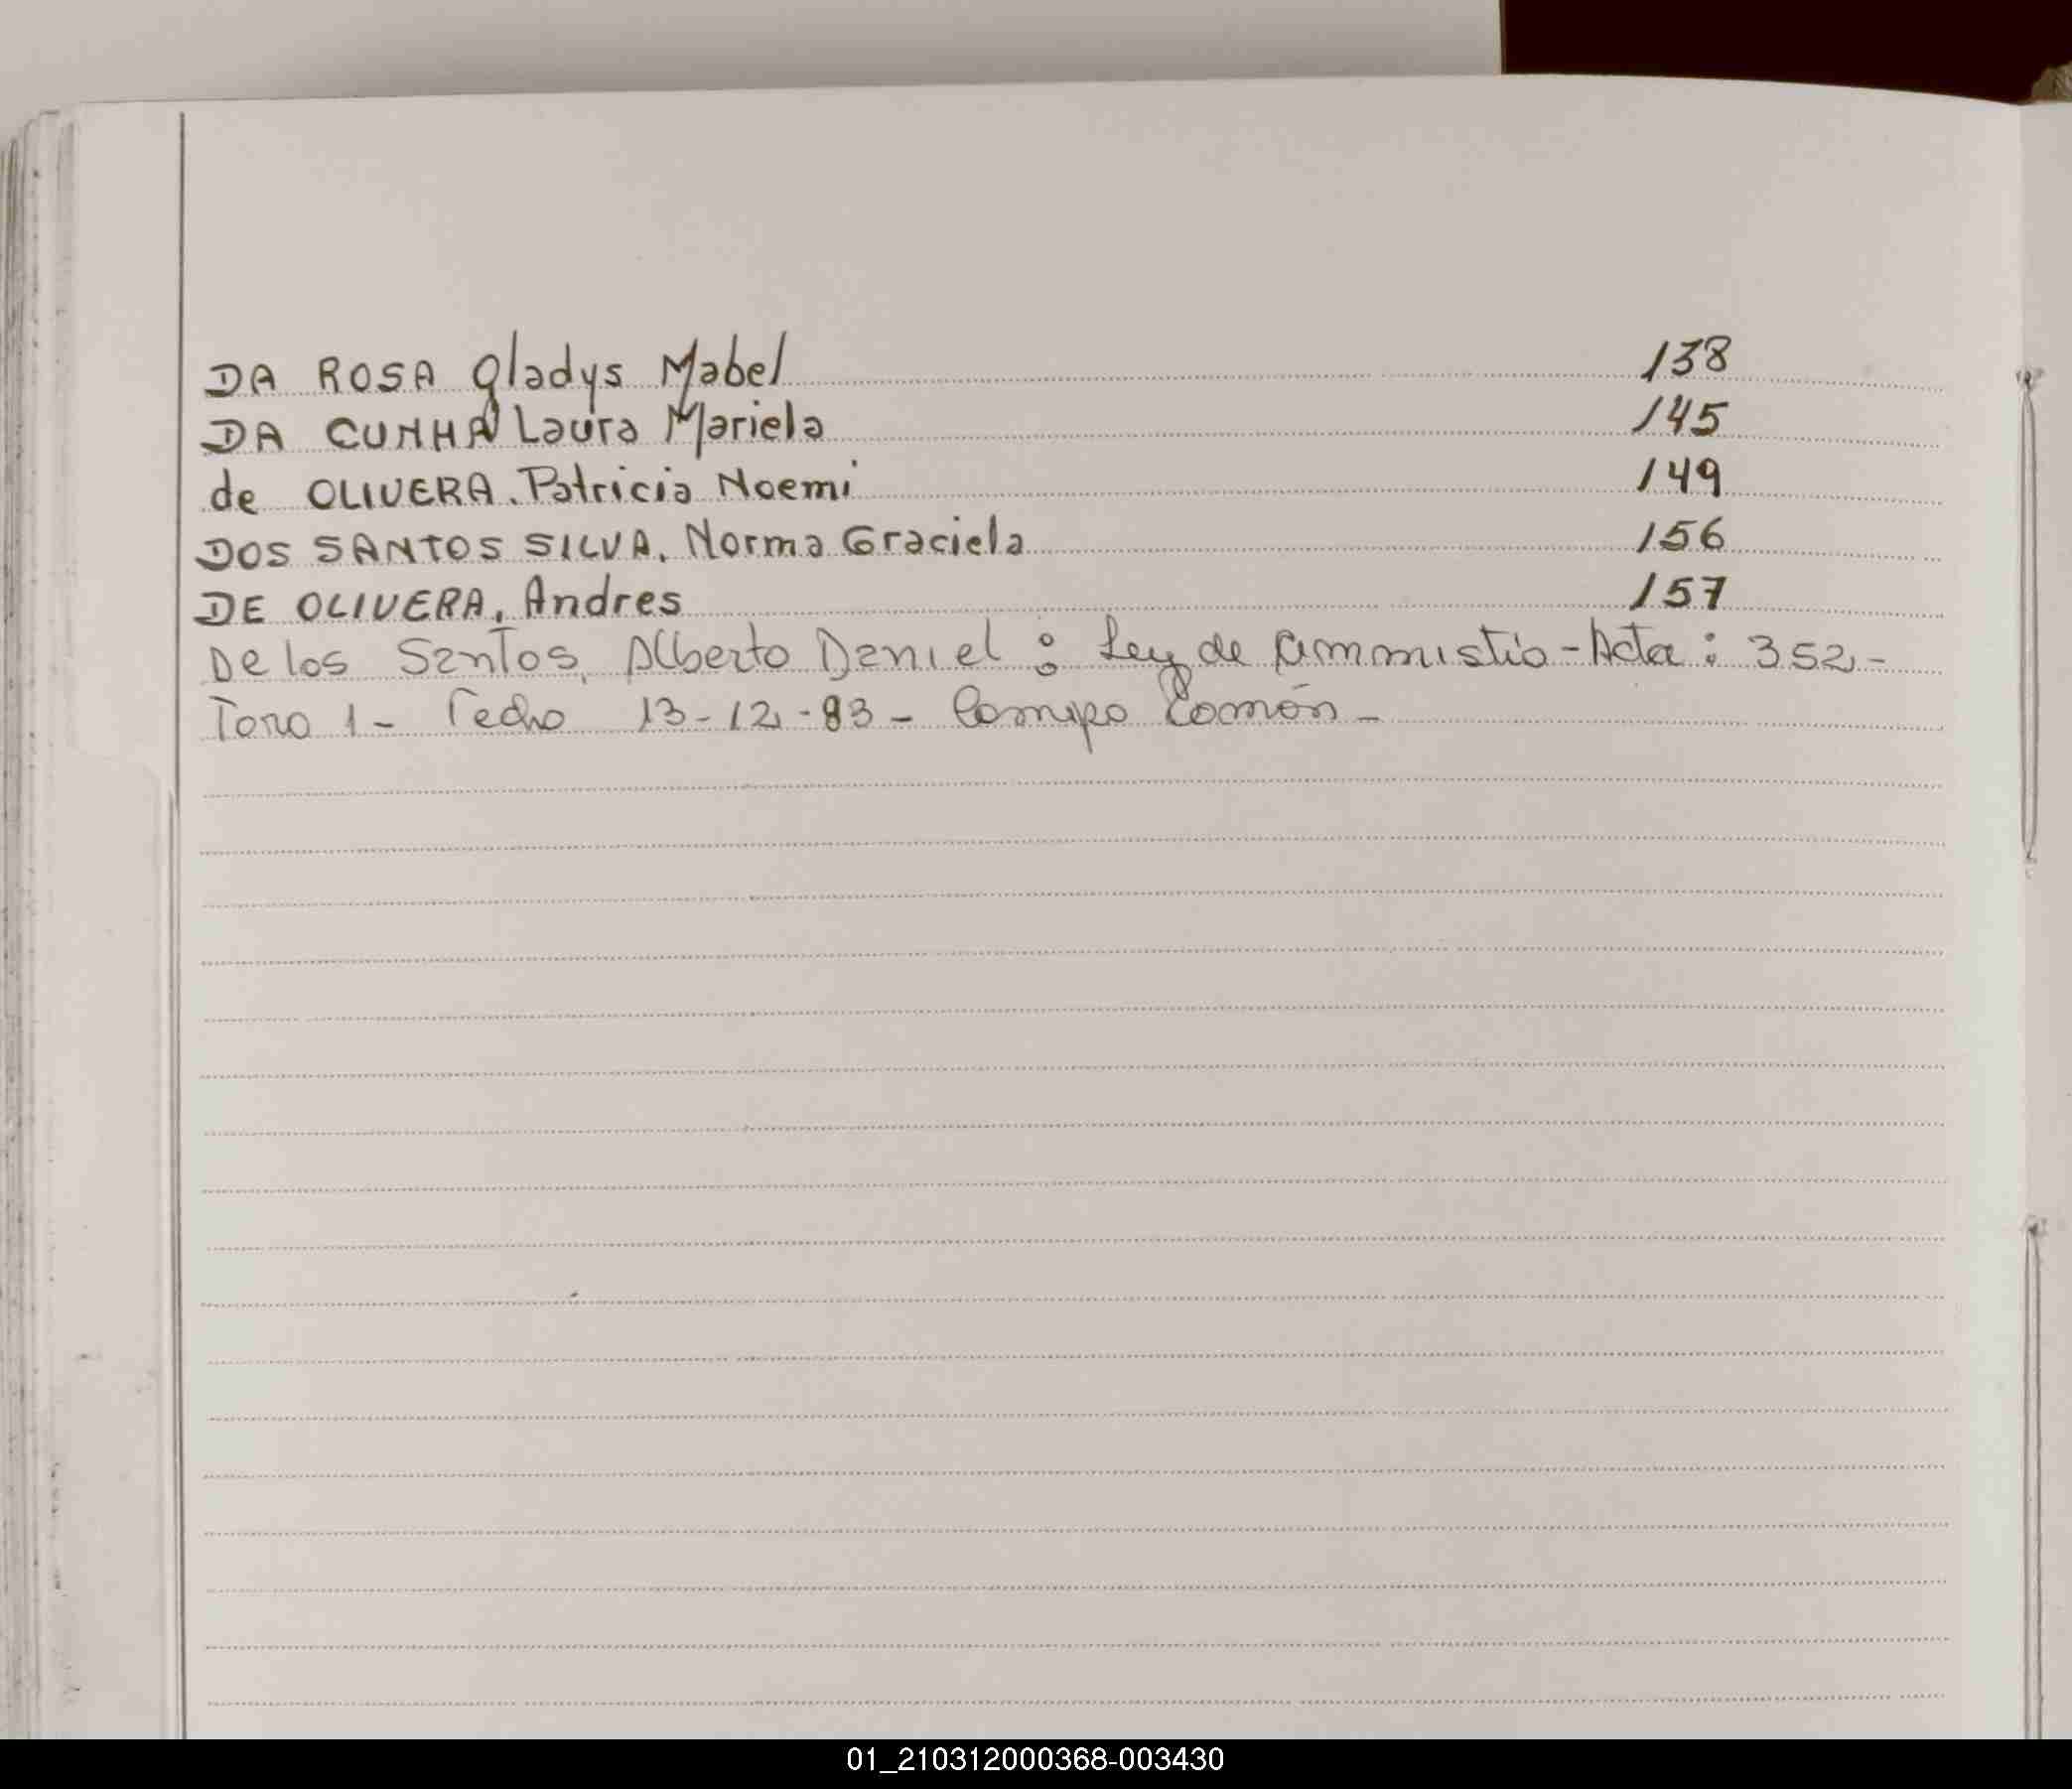 DA ROSA Gladys Mabel 138
DA CUNHA Laura Mariela 145
de OLIVERA. Patricia Noemi 149
DOS SANTOS SILVA. Norma Graciela 156
DE OLIVERA, Andres 157
De los Santos, Alberto Daniel: Ley de Ammistio - Acta: 352 -
Tomo 1 - Fecha 13-12-83 - Campo Ramón -
01_210312000368-003430